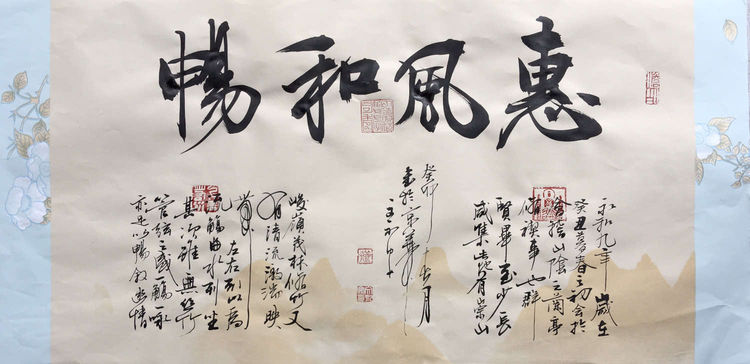 惠風和暢
永和九年歲在
癸丑暮春之初會於
會稽山陰之蘭亭
脩禊事也群
賢畢至少長
咸集此地有崇山
峻嶺茂林修竹又
有清流激湍映
帶
左右引以為
流觴曲水列坐
其次雖無絲竹
管絃之盛觴一詠
亦足以暢敘幽情
癸卯 月
於京華